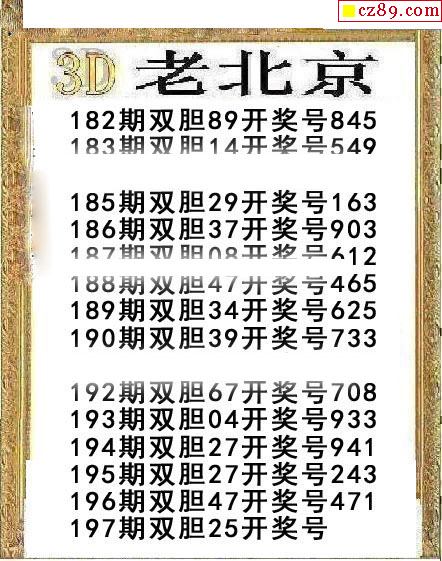 cz89.com
3D 老北京
182期双胆89开奖号845
183期双胆14开奖号549
185期双胆29开奖号163
186期双胆37开奖号903
187期双胆08开奖号612
188期双胆47开奖号465
189期双胆34开奖号625
190期双胆39开奖号733
192期双胆67开奖号708
193期双胆04开奖号933
194期双胆27开奖号941
195期双胆27开奖号243
196期双胆47开奖号471
197期双胆25开奖号